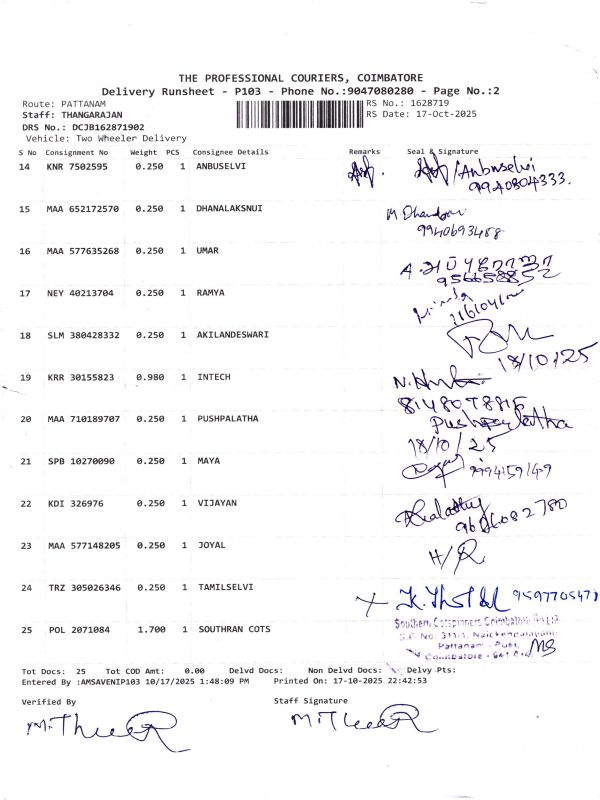 THE PROFESSIONAL COURIERS, COIMBATORE
Delivery Runsheet - P103 - Phone No.:9047080280 - Page No.:2
Route: PATTANAM
RS No.: 1628719
Staff: THANGARAJAN
RS Date: 17-Oct-2025
DRS No.: DCJB162871902
Vehicle: Two Wheeler Delivery
S No Consignment No Weight PCS Consignee Details Remarks Seal & Signature
14 KNR 7502595 0.250 1 ANBUSELVI /Anbuselvi
9940804333.
15 MAA 652172570 0.250 1 DHANALAKSNUI M
9940693488
16 MAA 577635268 0.250 1 UMAR
17 NEY 40213704 0.250 1 RAMYA
18 SLM 380428332 0.250 1 AKILANDESWARI
18/10/25
19 KRR 30155823 0.980 1 INTECH
20 MAA 710189707 0.250 1 PUSHPALATHA Pushpalatha
18/10/25
21 SPB 10270090 0.250 1 MAYA
22 KDI 326976 0.250 1 VIJAYAN
23 MAA 577148205 0.250 1 JOYAL H/R
24 TRZ 305026346 0.250 1 TAMILSELVI
25 POL 2071084 1.700 1 SOUTHRAN COTS
Southern Cotspinners Coimbatore Pvt Ltd
S.F. No: 311/1, Naickenpalayam
Pattanam - Post,
Coimbatore - 641
Tot Docs: 25 Tot COD Amt: 0.00 Delvd Docs: Non Delvd Docs: Delvy Pts:
Entered By :AMSAVENIP103 10/17/2025 1:48:09 PM Printed On: 17-10-2025 22:42:53
Verified By Staff Signature